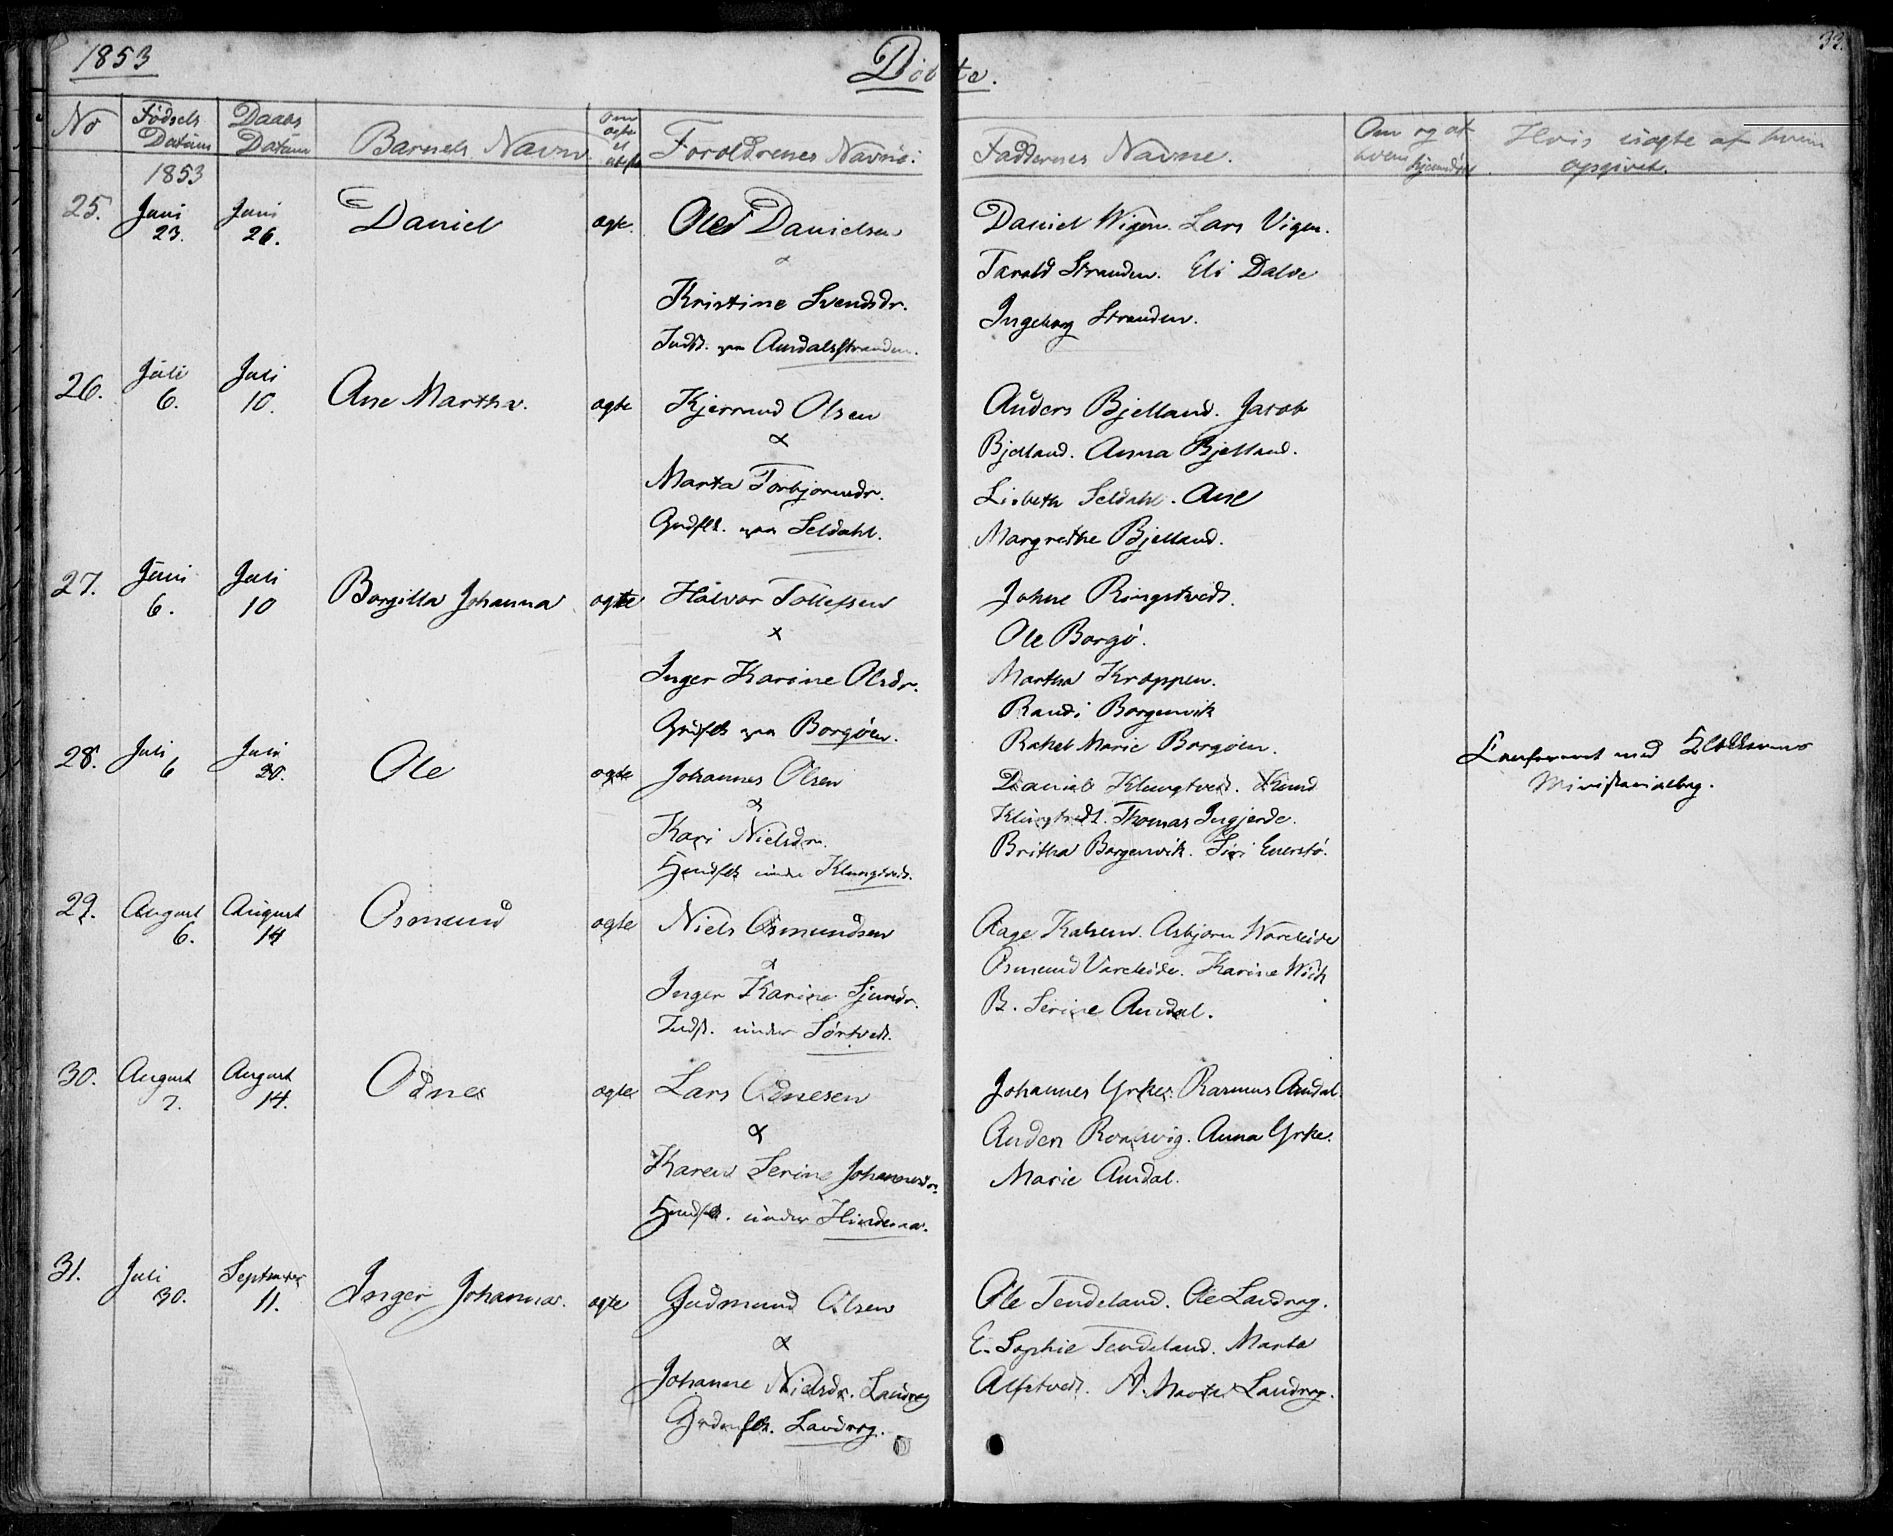 1853
Döbte.
33.
No
Fødsels Datum
Daabs Datum
Barnets Navn
Om ægte el uægte
Foroldrenes Navne:
Faddernes Navne.
Om og af hvem hjemdøbt
Hvis uægte af hvem opgivet.
1853
25. Juni 23. Juni 26. Daniel ægte. Ole Danielsen
&
Kristine Svendsdr.
Indst. paa Aardalsstranden.
Daniel Wigen. Lars Vigen.
Tarald Stranden. Eli Dalve
Ingeborg Stranden.
26. Juli 6. Juli 10. Ane Martha. ægte Kjerrand Olsen
&
Marta Torbjornsdr.
Grdflk. paa Seldahl.
Anders Bjelland. Jacob
Bjelland. Anna Bjelland.
Lisbeth Seldahl. Ane
Margrethe Bjelland.
27. Juni 6. Juli 10 Borgilla Johanna ægte Halvor Tollefsen
&
Inger Karine Olsdr.
Grdflk paa Borgøen.
Johne Ringstveds.
Ole Borgö.
Martha Kroppen.
Randi Borgenvik
Rakel Marie Borgøen.
28. Juli 6 Juli 20. Ole ægte Johannes Olsen
&
Kari Nielsdr.
Hmdflk under Klungtved.
Daniel Klungtved. Knud
Klungtvedt. Thomas Ingjerde.
Britha Borgenvik. Siri Enerstø.
Conferert med Klokkerens
Ministerialbog.
29. August 6. August 14 Osmund ægte Niels Osmundsen
&
Inger Karine Sjursdr.
Indst. under Sørtvedt.
Aage Kalsem. Asbjørn Wareleide
Osmund Vareleide. Karine Wiik
B. Serine Aardal.
30. August 7. August 14. Odnes ægte Lars Odnesen
&
Karen Serine Johannesdr.
Hmdflk. under Hinderaa.
Johannes Yrke. Rasmus Aardal.
Anders Ronsvig. Anna Yrke.
Marie Aardal.
31. Juli 30. September 11. Inger Johanna. ægte Gudmund Olsen
&
Johanne Nielsdr. Landrøg
Grdmflk. Landrøg.
Ole Tendeland. Ole Landrøg.
E. Sophie Tendeland. Marta
Alfstvedt. A. Marta Landrøg.